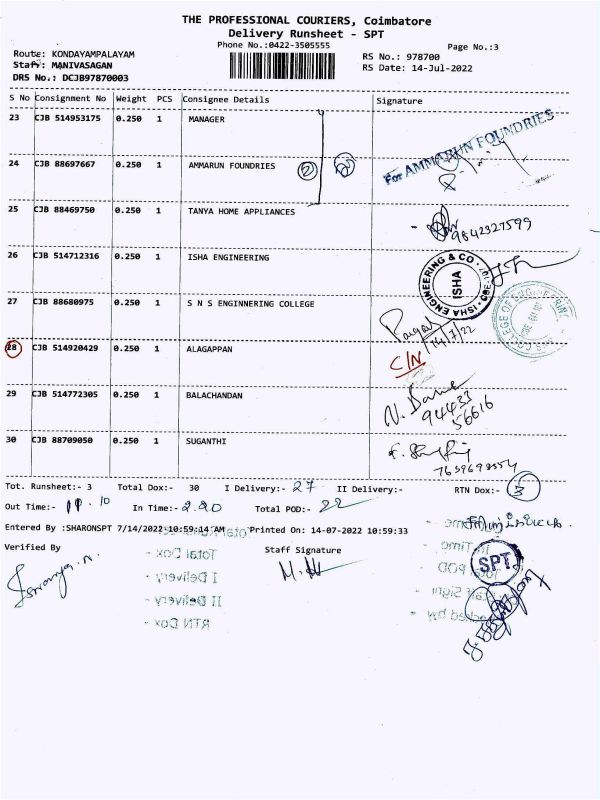 THE PROFESSIONAL COURIERS, Coimbatore
Delivery Runsheet - SPT
Phone No.:0422-3505555
Page No.:3
Route: KONDAYAMPALAYAM
RS No.: 978700
Staff: MANIVASAGAN
RS Date: 14-Jul-2022
DRS No.: DCJB97870003
S No Consignment No Weight PCS Consignee Details Signature
23 CJB 514953175 0.250 1 MANAGER
24 CJB 88697667 0.250 1 AMMARUN FOUNDRIES 2
For AMMARUN FOUNDRIES
25 CJB 88469750 0.250 1 TANYA HOME APPLIANCES
9842327599
26 CJB 514712316 0.250 1 ISHA ENGINEERING
ISHA ENGINEERING & CO
ISHA
27 CJB 88680975 0.250 1 S N S ENGINNERING COLLEGE
14/7/22
28 CJB 514920429 0.250 1 ALAGAPPAN
C/N
29 CJB 514772305 0.250 1 BALACHANDAN
94433
56616
30 CJB 88709050 0.250 1 SUGANTHI
Tot. Runsheet:- 3 Total Dox:- 30 I Delivery:- 27 II Delivery:- RTN Dox:- 3
Out Time:- 10 In Time:- 2.20 Total POD:- 22
Entered By :SHARONSPT 7/14/2022 10:59:14 AM Printed On: 14-07-2022 10:59:33
Verified By Staff Signature
SPT
Total Dox -
I Delivery -
II Delivery -
RTN Dox -